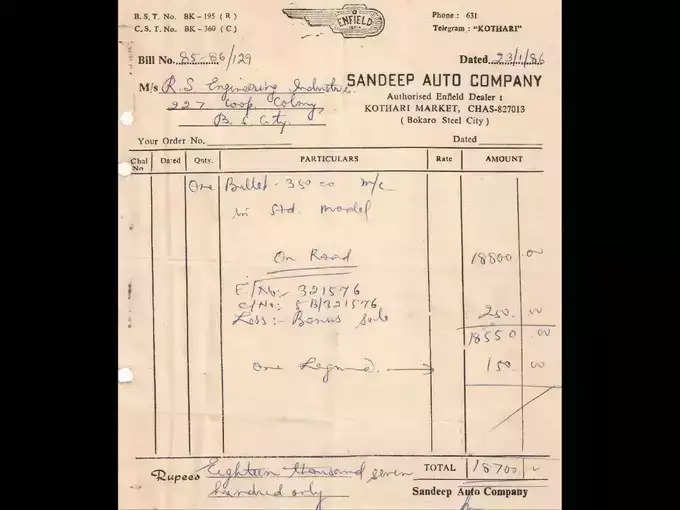 B. S. T. No. BK-195 ( R )
C. S. T. No. BK-360 ( C )
ENFIELD
Phone : 631
Telegram : "KOTHARI"
Bill No. 85-86/129
Dated 23/1/86
M/s R.S Engineering Industries
227 Coop. Colony
B. S. City.
SANDEEP AUTO COMPANY
Authorised Enfield Dealer :
KOTHARI MARKET, CHAS-827013
( Bokaro Steel City )
Your Order No.
Dated
Chal No Dated Qnty. PARTICULARS Rate AMOUNT
One Bullet - 350 cc m/c
in Std. model
On Road 18800.00
E/No:- 321576
C/No:- 5B/321576
Less:- Bonus Sale 250.00
18550.00
One Legguard. → 150.00
Rupees Eighteen thousand seven
hundred only
TOTAL 18700
Sandeep Auto Company